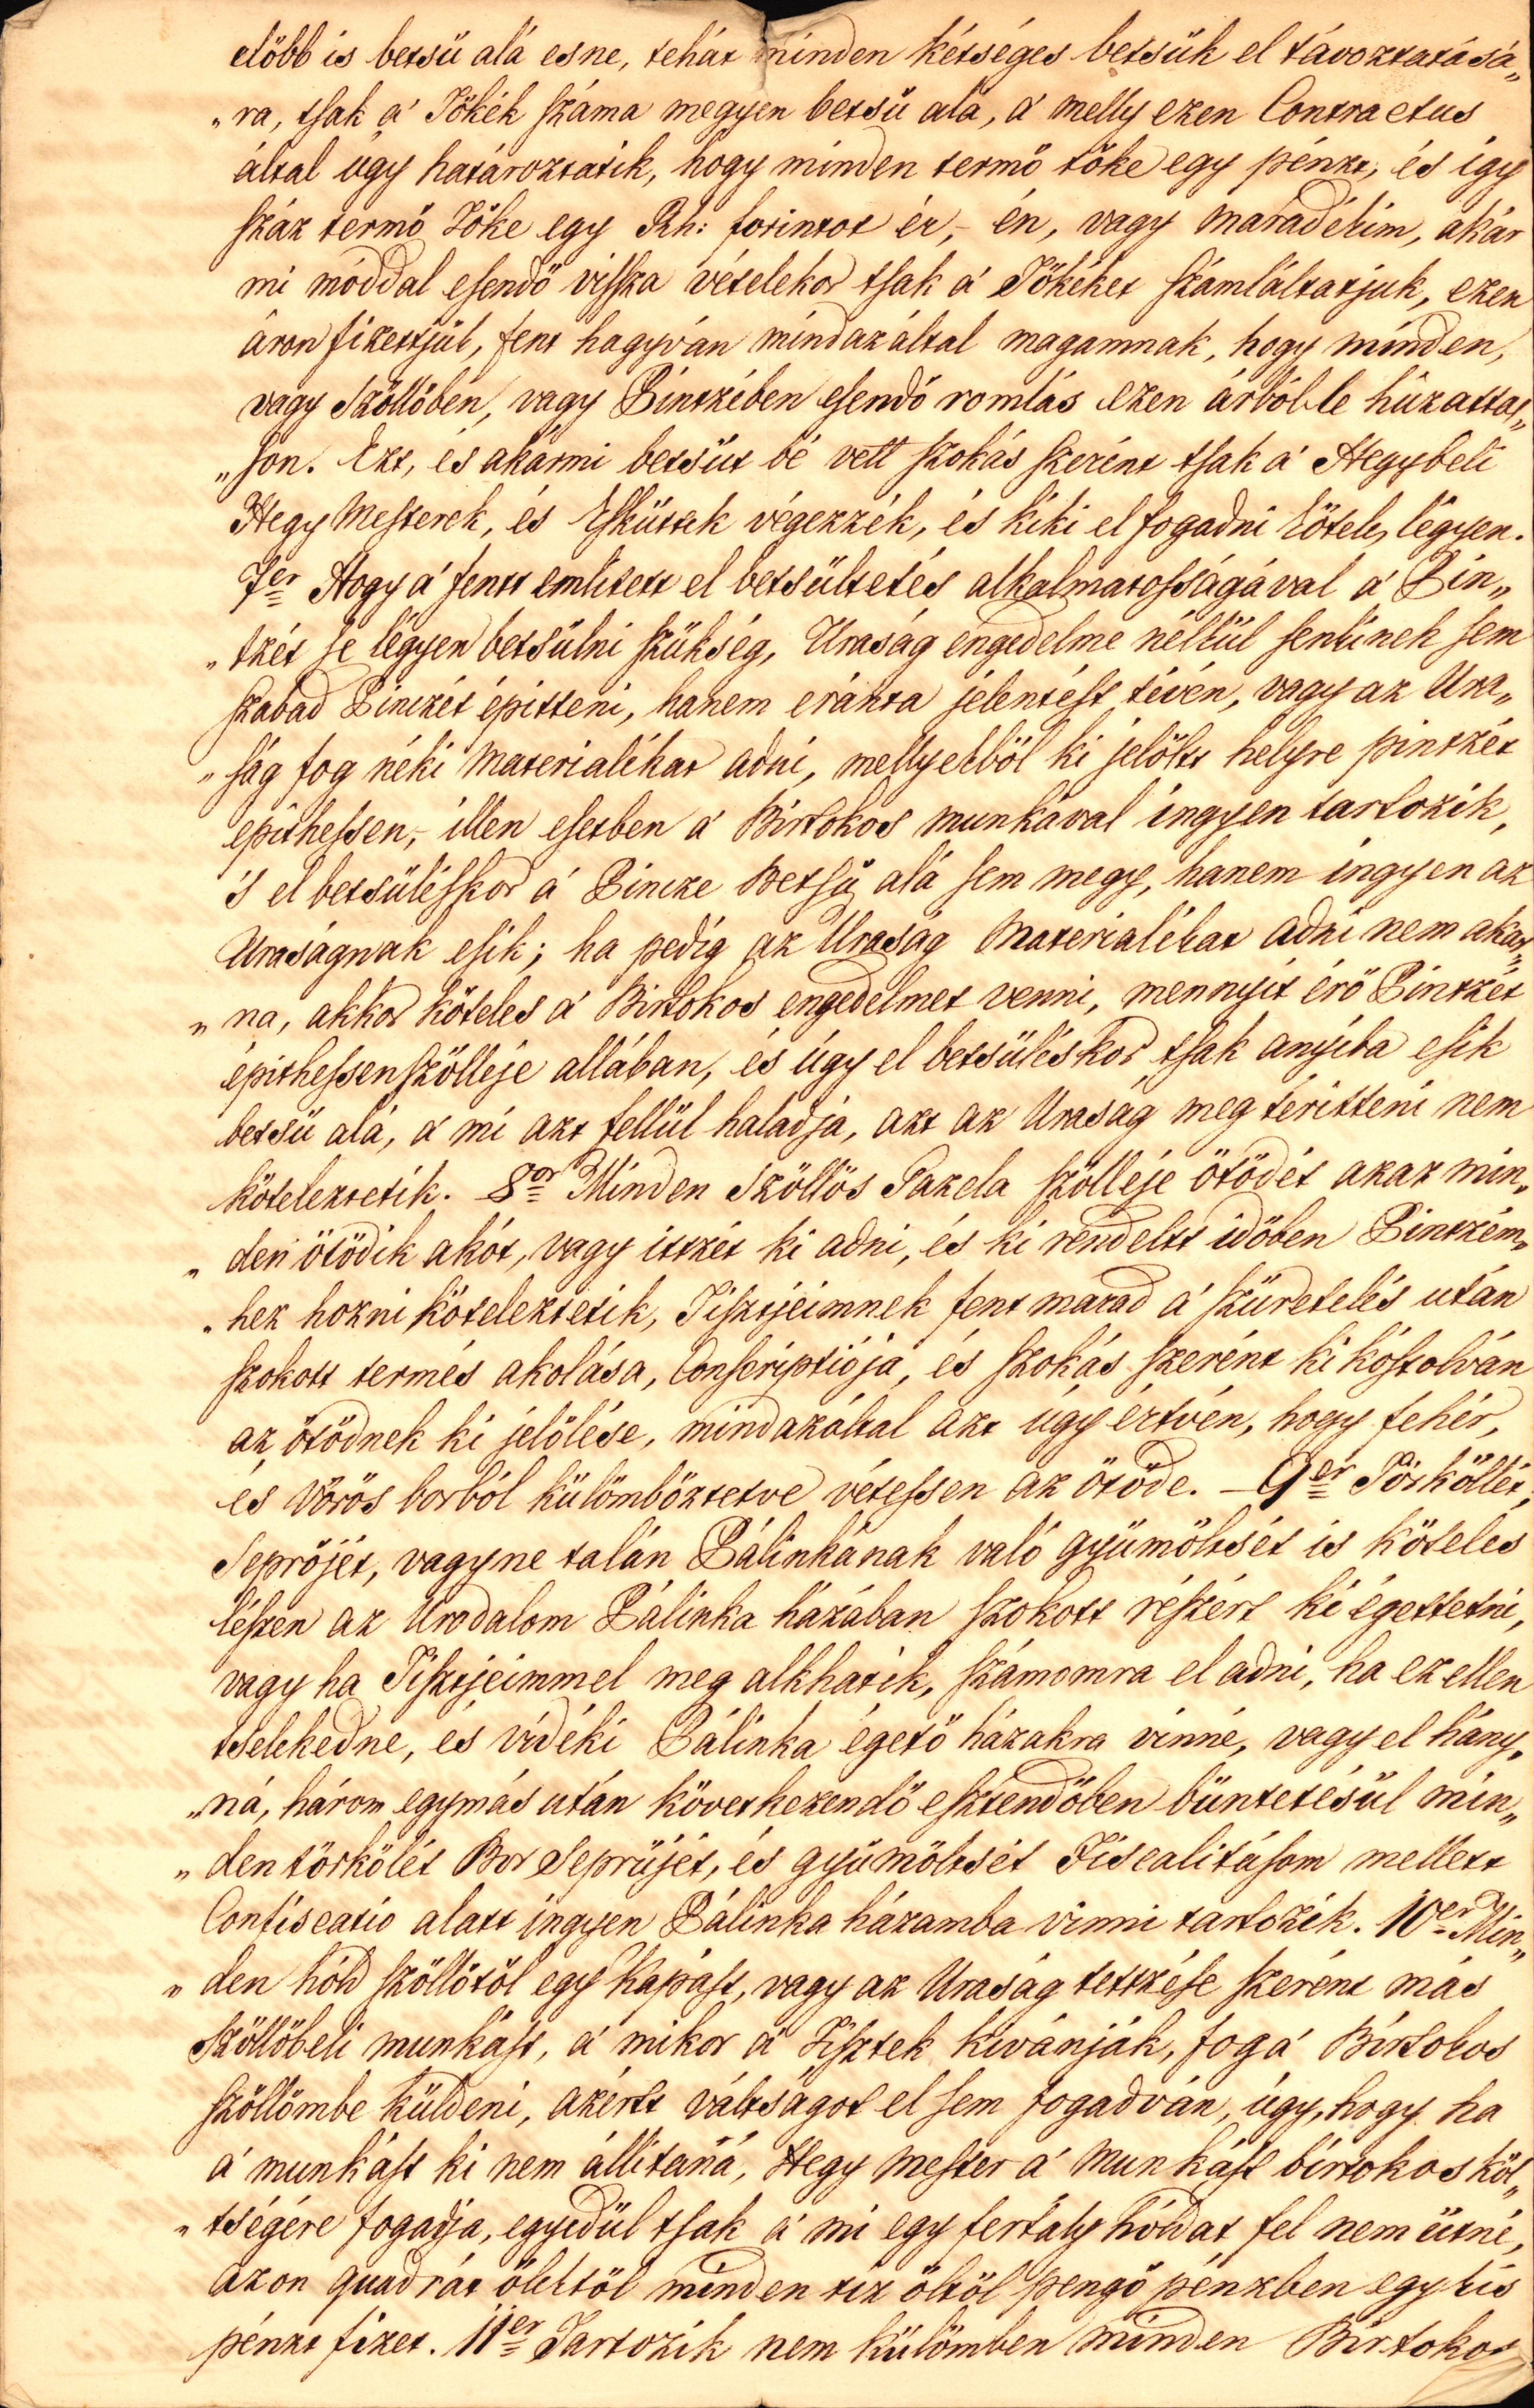 elöbb is betsü alá esne, tehát minden kétséges betsük el távoztatásá„
„ra, tsak a' Tökék száma megyen betsü alá, a' melly ezen Contractus
által úgy határoztatik, hogy minden termö töke egy pénzt, és így
száz termö Töke egy Rh: forintot ér, - én, vagy maradékim, akár
mi móddal esendö vissza vételekor tsak a' Tökéket számláltatjuk, ezen
áron fizettjük, fent hagyván mindazáltal magamnak, hogy minden,
vagy szöllöben, vagy Pintzében esendö romlás ezen árból le húzattas„
„son. Ezt, és akármi betsüt bé vett szokás szerént tsak a' Hegybeli
Hegy Mesterek, és Esküttek végezzék, és kiki el fogadni köteles légyen.
7er Hogy a' fentt említett el betsültetés alkalmatosságával a' Pin„
„tzét se légyen betsülni szükség, Uraság engedelme nélkül senkinek sem
szabad Pinczét építteni, hanem eránta jelentést tévén, vagy az Ura„
„ság fog néki Materialékat adni, mellyekböl ki jelöltt helyre pintzét
epithessen, - illen esetben a' Birtokos munkával ingyen tartozik,
's el betsüléskor a' Pincze Betsü alá sem megy, hanem ingyen az
Uraságnak esik; ha pedig az Uraság Materialékat adni nem akar„
„na, akkor köteles a' Birtokos engedelmet venni, mennyit érö Pintzét
épithessen szölléje allában, és úgy el betsüléskor tsak anyiba esik
betsü alá, a' mi azt fellül haladja, azt az Uraság meg téritteni nem
köteleztetik. 8or Minden Szöllös Gazda szölléje ötödét azaz min„
„den ötödik akót, vagy itzét ki adni, és ki rendeltt idöben Pintzém„
„hez hozni köteleztetik, Tisztjeimnek fent marad a' szüretelés után
szokott termés akolása, Conscriptiója, és szokás szerént ki kóstolván
az ötödnek ki jelölése, mindazáltal azt úgy értvén, hogy fehér,
és vörös borból külömböztetve vétessen az ötöde. - 9er Törköllét,
Sepröjét, vagy ne talán Pálinkának való gyümöltsét is köteles
lészen az Urodalom Pálinka házában szokott részért ki égettetni,
vagy ha Tisztjeimmel meg alkhatik, számomra el adni, ha ez ellen
tselekedne, és vidéki Pálinka égetö házakra vinné, vagy el hány„
„ná, három egymás után következendö esztendöben büntetésül min„
„den törkölét Bor Seprüjét, és gyümöltsét Fiscalitásom mellett
Confiscatio alatt ingyen Pálinka házamba vinni tartozik. 10er Min„
„den hóld szöllötöl egy Kapást, vagy az Uraság tettzése szerént más
szöllöbeli munkást, a' mikor a' Tisztek kivánják, fog a' Birtokos
szöllömbe küldeni, azértt váltságot el sem fogadván, úgy, hogy ha
a' munkást ki nem állitaná, Hegy Mester a' Munkást birtokos köl„
„tségére fogadja, egyedül tsak a' mi egy fertály hóldat fel nem ütné,
azon quadrát ölektöl minden tiz öltöl pengö pénzben egy kis
pénzt fizet. 11er Tartozik nem külömben minden Birtokos